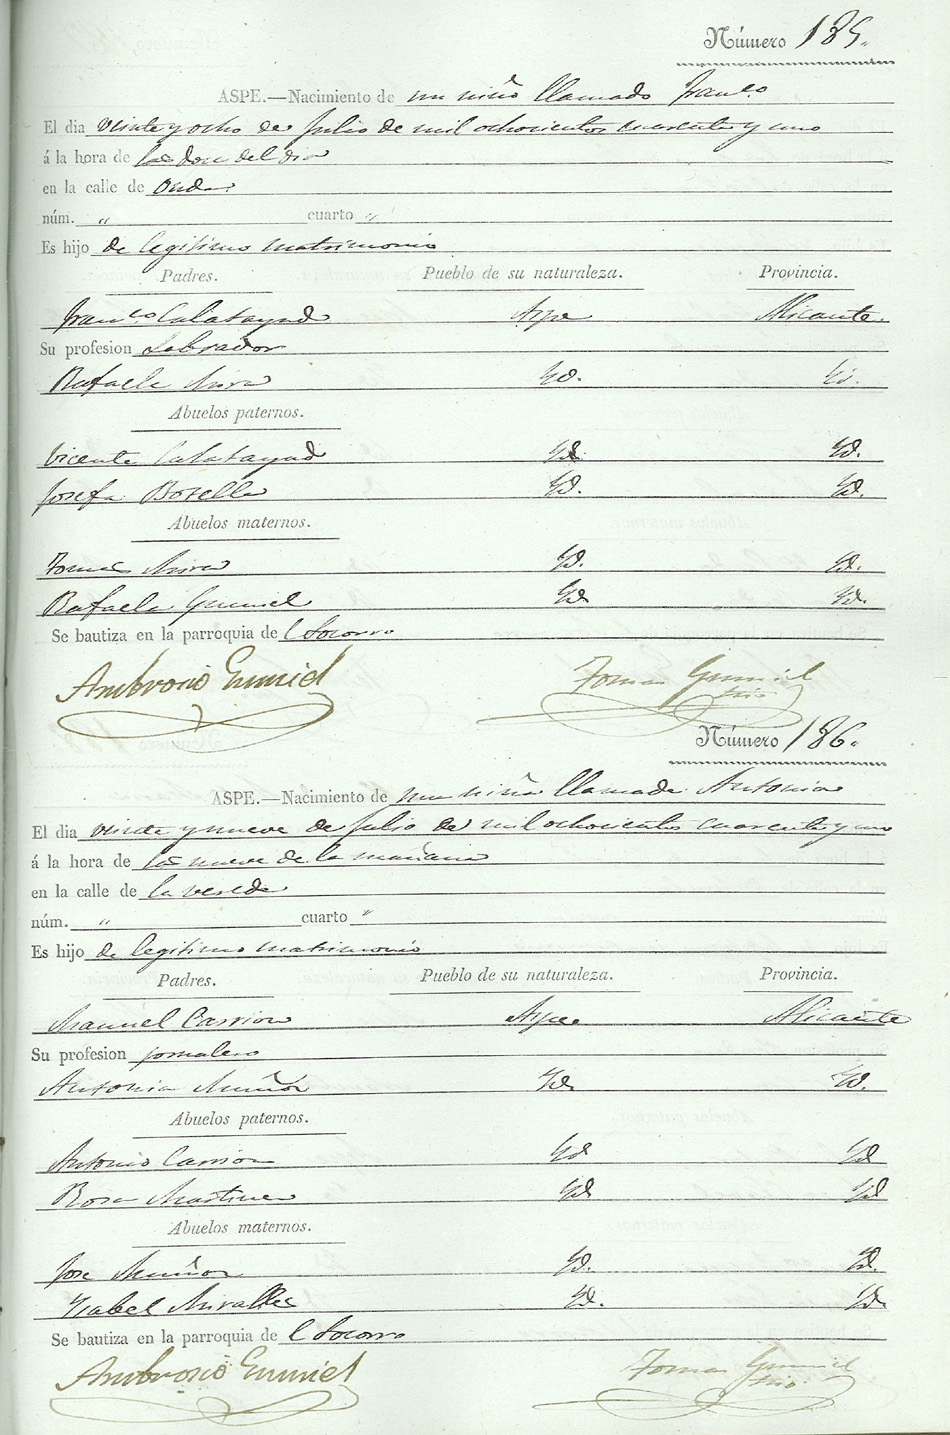 Número 185.
ASPE.—Nacimiento de un niño llamado Franco
El dia veinte y ocho de Julio de mil ochocientos cuarenta y uno
á la hora de las doce del dia
en la calle de Onda
núm. " cuarto "
Es hijo de legitimo matrimonio
Padres. Pueblo de su naturaleza. Provincia.
Franco Calatayud Aspe Alicante.
Su profesion Labrador
Rafaela Mira Yd. Yd.
Abuelos paternos.
Vicente Calatayud Yd. Yd.
Josefa Botella Yd. Yd.
Abuelos maternos.
Tomas Mira Yd. Yd.
Rafaela Gumiel Yd. Yd.
Se bautiza en la parroquia del Socorro
Ambrosio Gumiel Tomas Gumiel
Srio.
Número 186.
ASPE.—Nacimiento de una niña llamada Antonia
El dia veinte y nueve de Julio de mil ochocientos cuarenta y uno
á la hora de las nueve de la mañana
en la calle de la vereda
núm. " cuarto "
Es hijo de legitimo matrimonio
Padres. Pueblo de su naturaleza. Provincia.
Manuel Carrion Aspe Alicante
Su profesion jornalero
Antonia Muñoz Yd. Yd.
Abuelos paternos.
Antonio Carrion Yd Yd
Rosa Martinez Yd Yd
Abuelos maternos.
Jose Muñoz Yd. Yd.
Ysabel Miralles Yd. Yd.
Se bautiza en la parroquia del Socorro
Ambrosio Gumiel Tomas Gumiel
Srio.